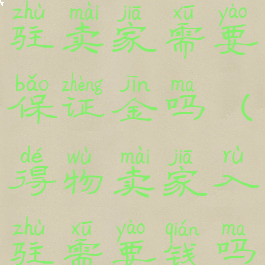 zhù mài jiā xū yào
驻卖家需要
bǎo zhèng jīn ma
保证金吗（
dé wù mài jiā rù
得物卖家入
zhù xū yào qián ma
驻需要钱吗